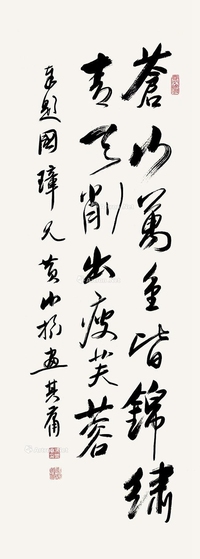 蒼山萬重皆錦繡
青天削出瘦芙蓉
奉題國璋兄黃山揽畫其庸